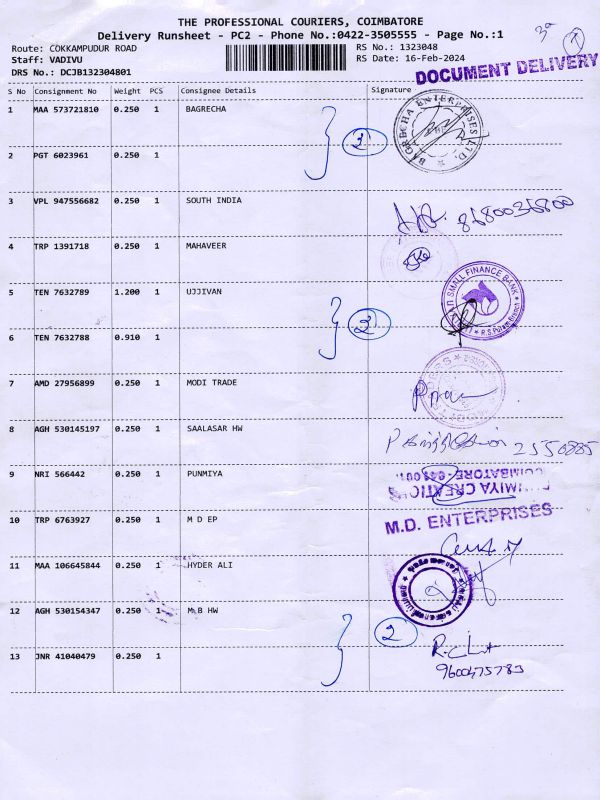 THE PROFESSIONAL COURIERS, COIMBATORE
Delivery Runsheet - PC2 - Phone No.:0422-3505555 - Page No.:1
Route: COKKAMPUDUR ROAD RS No.: 1323048
Staff: VADIVU RS Date: 16-Feb-2024
DRS No.: DCJB132304801
DOCUMENT DELIVERY
S No Consignment No Weight PCS Consignee Details Signature
1 MAA 573721810 0.250 1 BAGRECHA
BAGRECHA ENTERPRISES LTD.
2
2 PGT 6023961 0.250 1
3 VPL 947556682 0.250 1 SOUTH INDIA
4 TRP 1391718 0.250 1 MAHAVEER
5 TEN 7632789 1.200 1 UJJIVAN
UJJIVAN SMALL FINANCE BANK
R.S Puram Branch
2
6 TEN 7632788 0.910 1
7 AMD 27956899 0.250 1 MODI TRADE
8 AGH 530145197 0.250 1 SAALASAR HW
9 NRI 566442 0.250 1 PUNMIYA
PUNMIYA CREATIONS
COIMBATORE - 641 001.
10 TRP 6763927 0.250 1 M D EP
M.D. ENTERPRISES
11 MAA 106645844 0.250 1 HYDER ALI
12 AGH 530154347 0.250 1 M B HW
2
13 JNR 41040479 0.250 1
9600475783